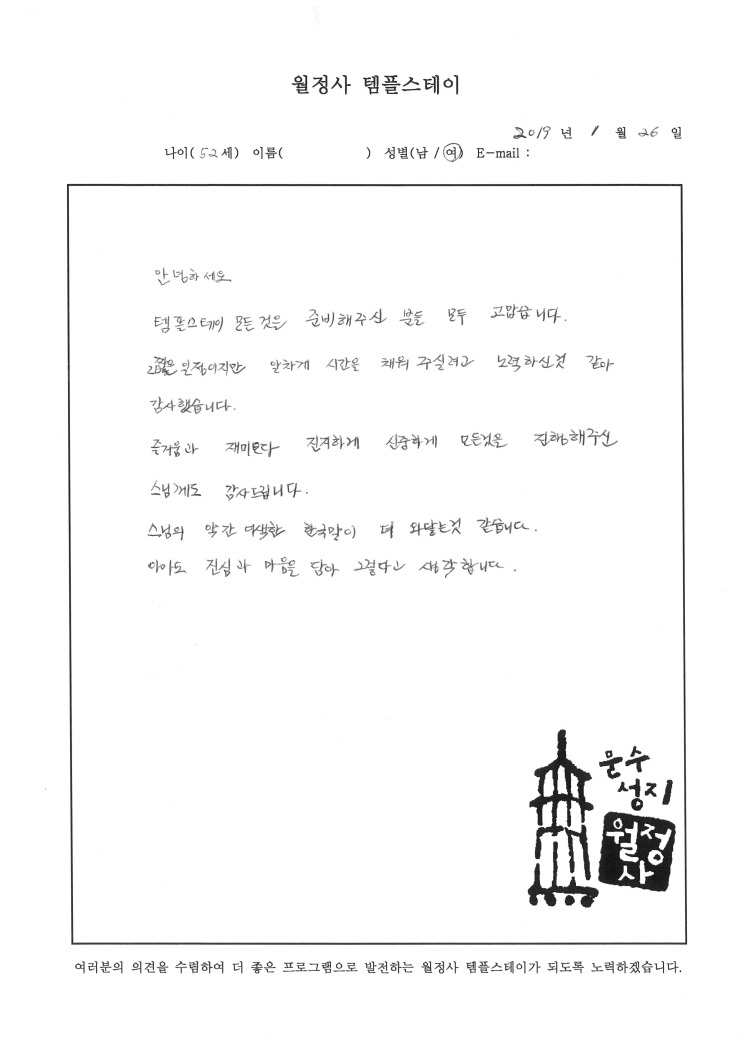 월정사 템플스테이
2019 년 1 월 26 일
나이( 52 세) 이름( ) 성별(남 / 여) E-mail :
안녕하세요
템플스테이 모든것은 준비해주신 분들 모두 고맙습니다.
짧은 일정이지만 알차게 시간을 채워 주실려고 노력하신것 같아
감사했습니다.
즐거움과 재미보다 진지하게 신중하게 모든것을 진행해주신
스님께도 감사드립니다.
스님의 약간 어색한 한국말이 더 와닿는것 같습니다.
아마도 진심과 마음을 담아 그렇다고 생각합니다.
문수
성지
월정
사
여러분의 의견을 수렴하여 더 좋은 프로그램으로 발전하는 월정사 템플스테이가 되도록 노력하겠습니다.